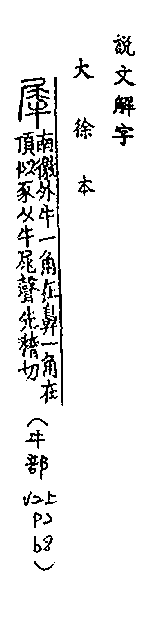 說文解字
大徐本
犀
南徼外牛一角在鼻一角在
頂似豕从牛尾聲先稽切
(牛部 V2上 P2 b8)